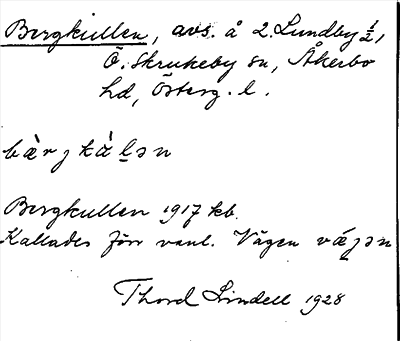 Bergkullen, avs. å 2. Lundby ½,
Ö. Skrukeby sn, Åkerbo
hd, Österg. l.
bàrjkàlən
Bergkullen 1917 kb.
Kallades förr vanl. Vägen vä́ȷən
Thord Lindell 1928